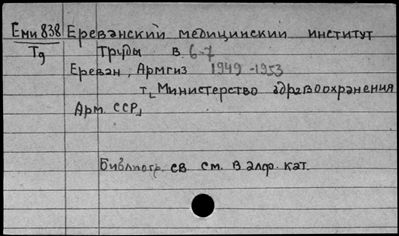 Еми 838 Ереванский медицинский институт
Тд Труды в. 6-7
Ереван, Армгиз 1949-1953
т. Министерство здравоохранения
Арм. ССР
Библиогр. св см. в алф. кат.